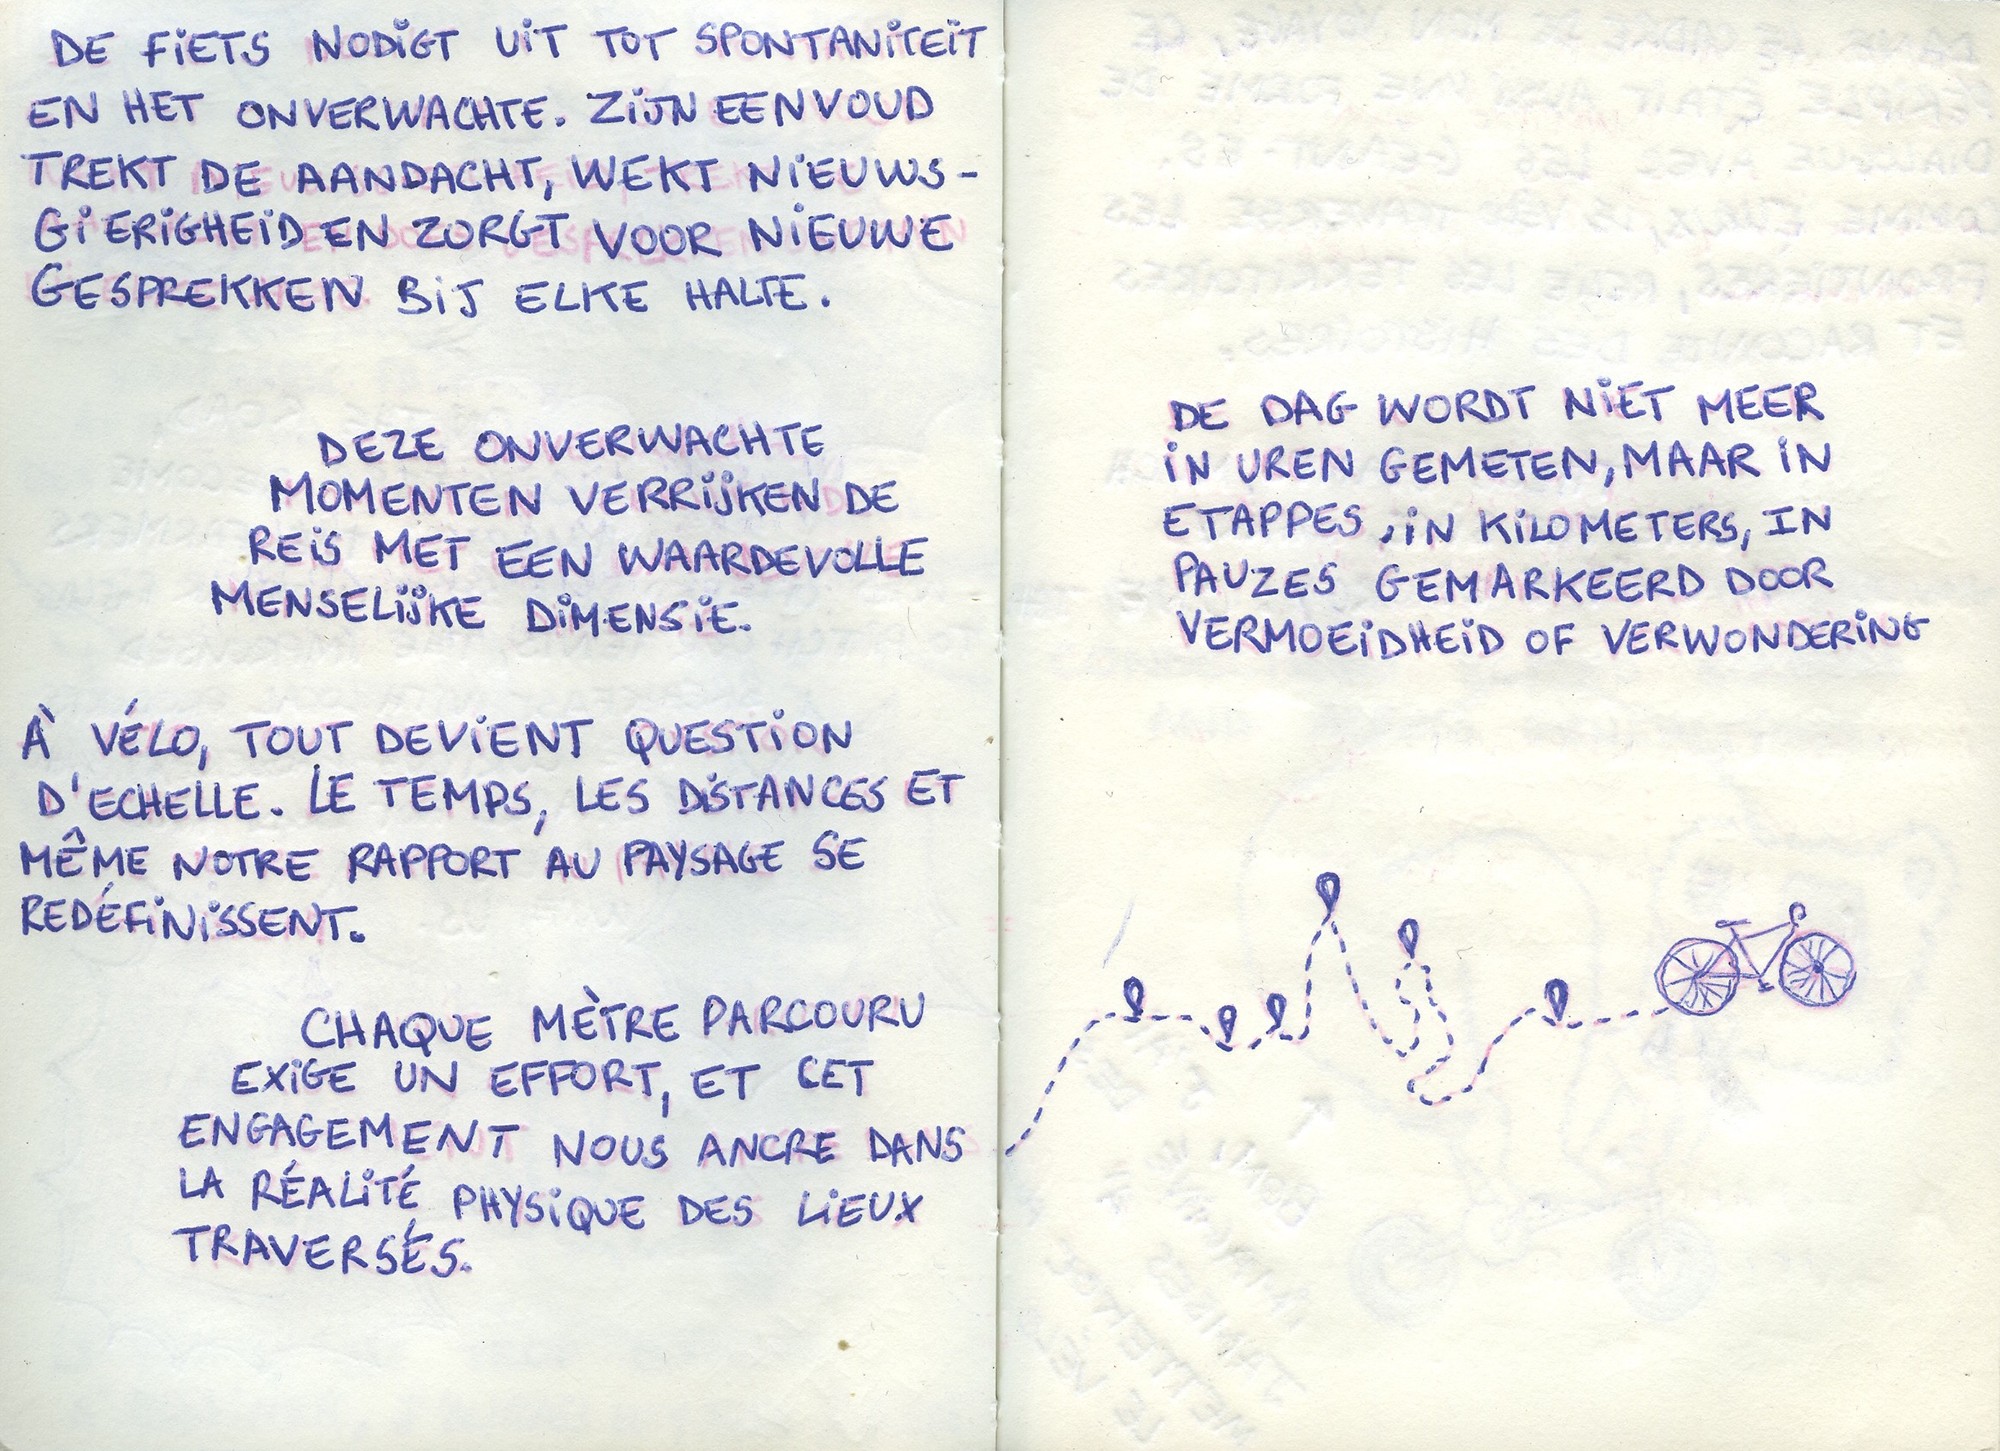 DE FIETS NODIGT UIT TOT SPONTANITEÏT
EN HET ONVERWACHTE. ZIJN EENVOUD
TREKT DE AANDACHT, WEKT NIEUWS-
GIERIGHEID EN ZORGT VOOR NIEUWE
GESPREKKEN BIJ ELKE HALTE.
DEZE ONVERWACHTE
MOMENTEN VERRIJKEN DE
REIS MET EEN WAARDEVOLLE
MENSELIJKE DIMENSIE.
À VÉLO, TOUT DEVIENT QUESTION
D'ECHELLE. LE TEMPS, LES DISTANCES ET
MÊME NOTRE RAPPORT AU PAYSAGE SE
REDÉFINISSENT.
CHAQUE MÈTRE PARCOURU
EXIGE UN EFFORT, ET CET
ENGAGEMENT NOUS ANCRE DANS
LA RÉALITÉ PHYSIQUE DES LIEUX
TRAVERSÉS.
DE DAG WORDT NIET MEER
IN UREN GEMETEN, MAAR IN
ETAPPES, IN KILOMETERS, IN
PAUZES GEMARKEERD DOOR
VERMOEIDHEID OF VERWONDERING